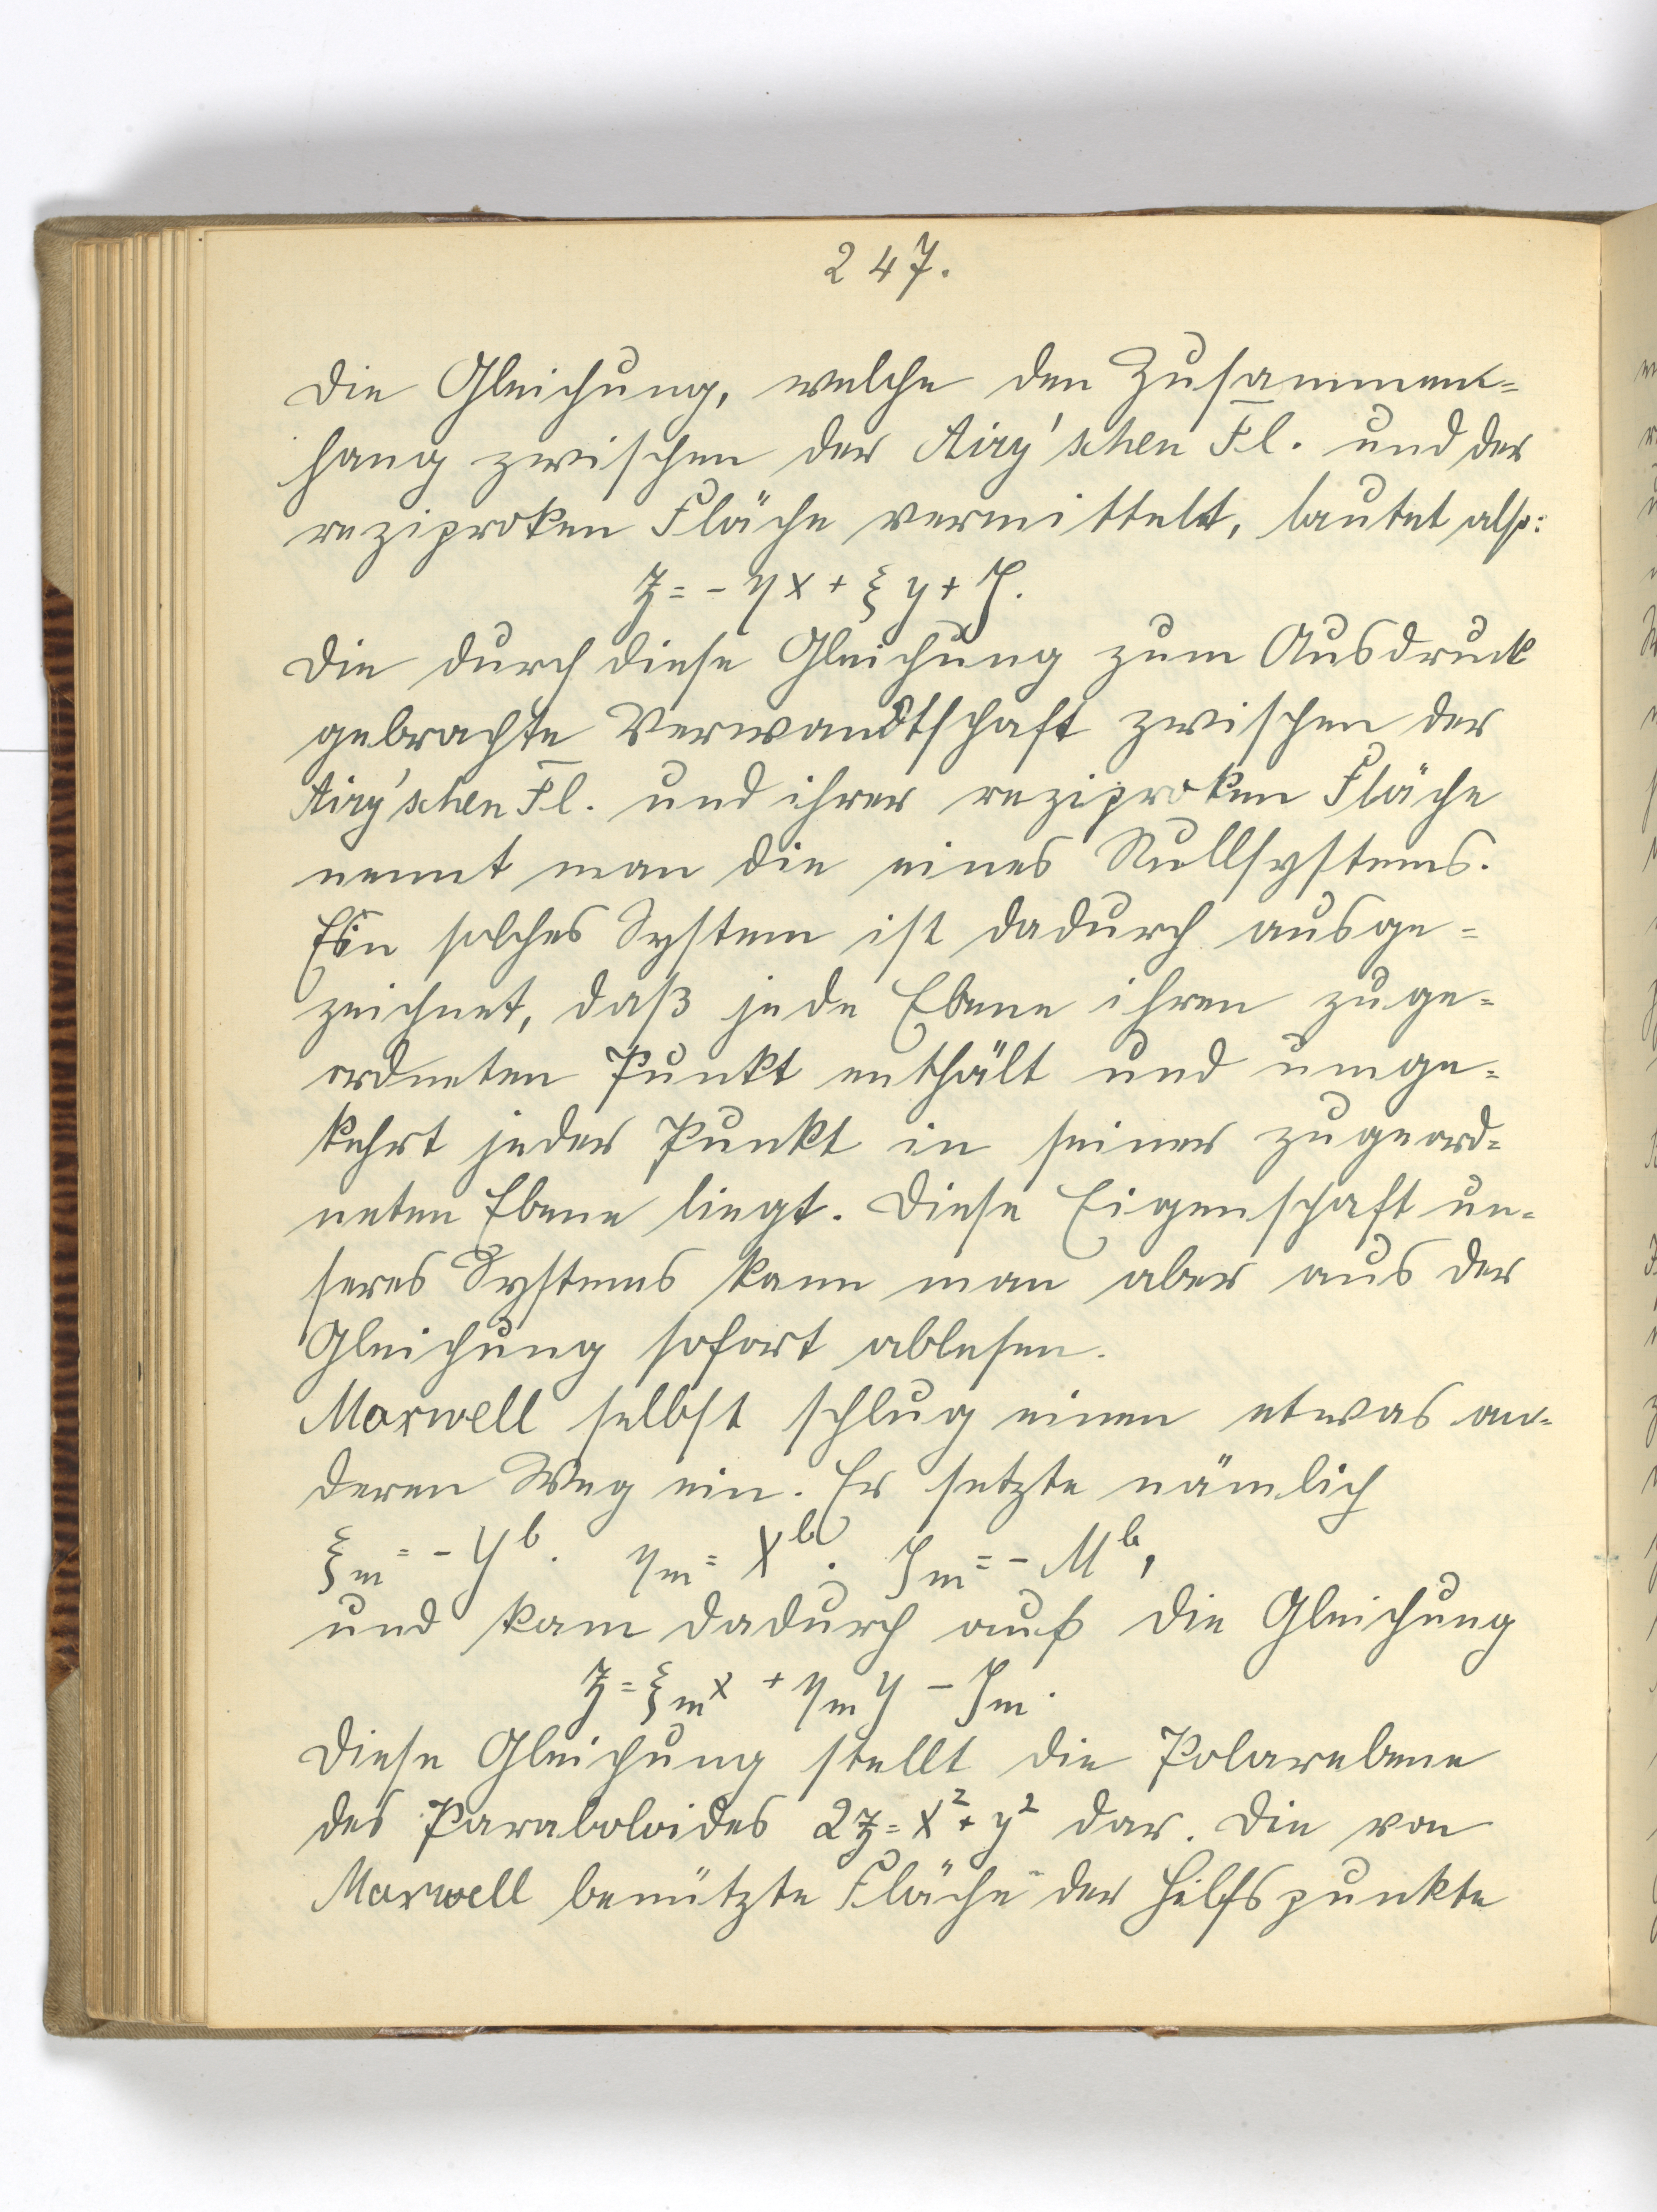 247.
Die Gleichung, welche den Zusammen=
hang zwischen der Airy'schen F̅l. und der
reziproken Fläche vermittelt, lautet also:
z = - ηx + ξy + ζ.
Die durch diese Gleichung zum Ausdruck
gebrachte Verwandtschaft zwischen der
Airy'schen F̅l. und ihrer reziproken Fläche
nennt man die eines Nullsystems.
Ein solches System ist dadurch ausge=
zeichnet, daß jede Ebene ihren zuge=
ordneten Punkt enthält und umge=
kehrt jeder Punkt in seiner zugeord=
neten Ebene liegt. Diese Eigenschaft un=
seres Systems kann man aber aus der
Gleichung sofort ablesen.
Maxwell selbst schlug einen etwas an=
deren Weg ein. Er setzte nämlich
ξₘ = - Yᵇ. ηₘ = Xᵇ. ζₘ = - Mᵇ,
und kam dadurch auf die Gleichung
z = ξₘx + ηₘy - ζₘ.
Diese Gleichung stellt die Polarebene
des Paraboloides 2z = x² + y² dar. Die von
Maxwell benützte Fläche der Hilfspunkte